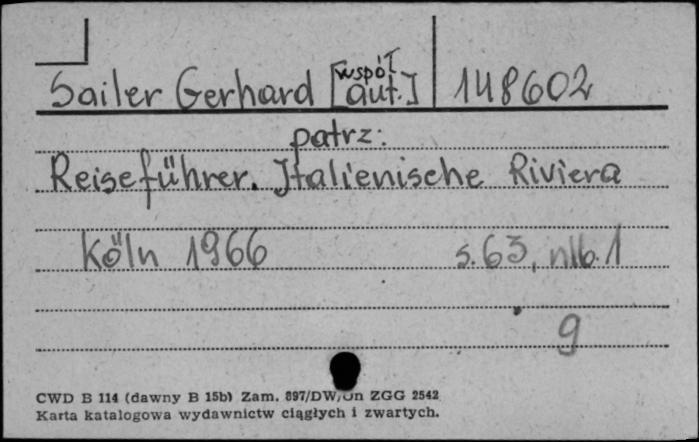 Sailer Gerhard [współ. aut.] 148602
patrz:
Reiseführer. Italienische Riviera
Köln 1966 s. 63, nlb. 1
g
CWD B 114 (dawny B 15b) Zam. 897/DW/Jn ZGG 2542
Karta katalogowa wydawnictw ciągłych i zwartych.